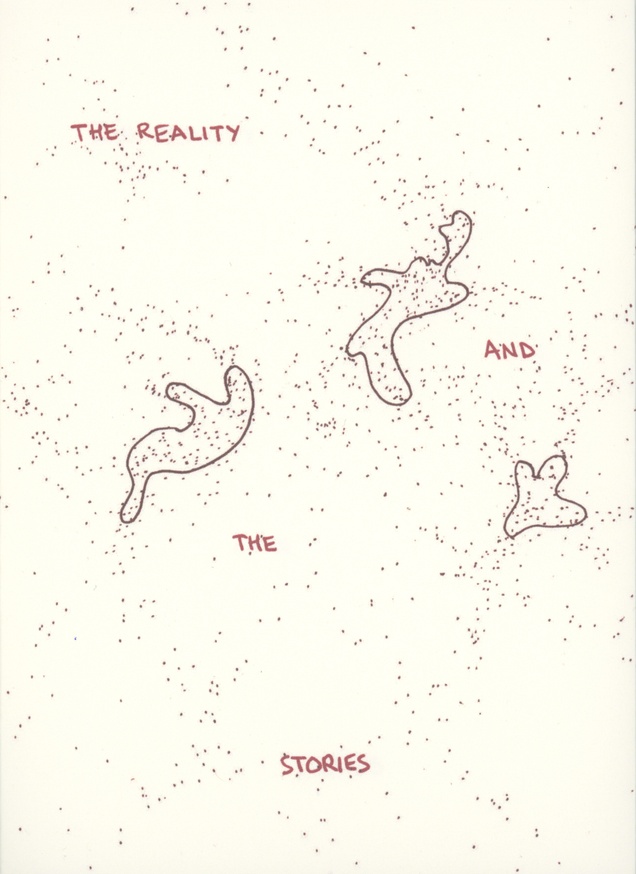 THE REALITY
AND
THE
STORIES